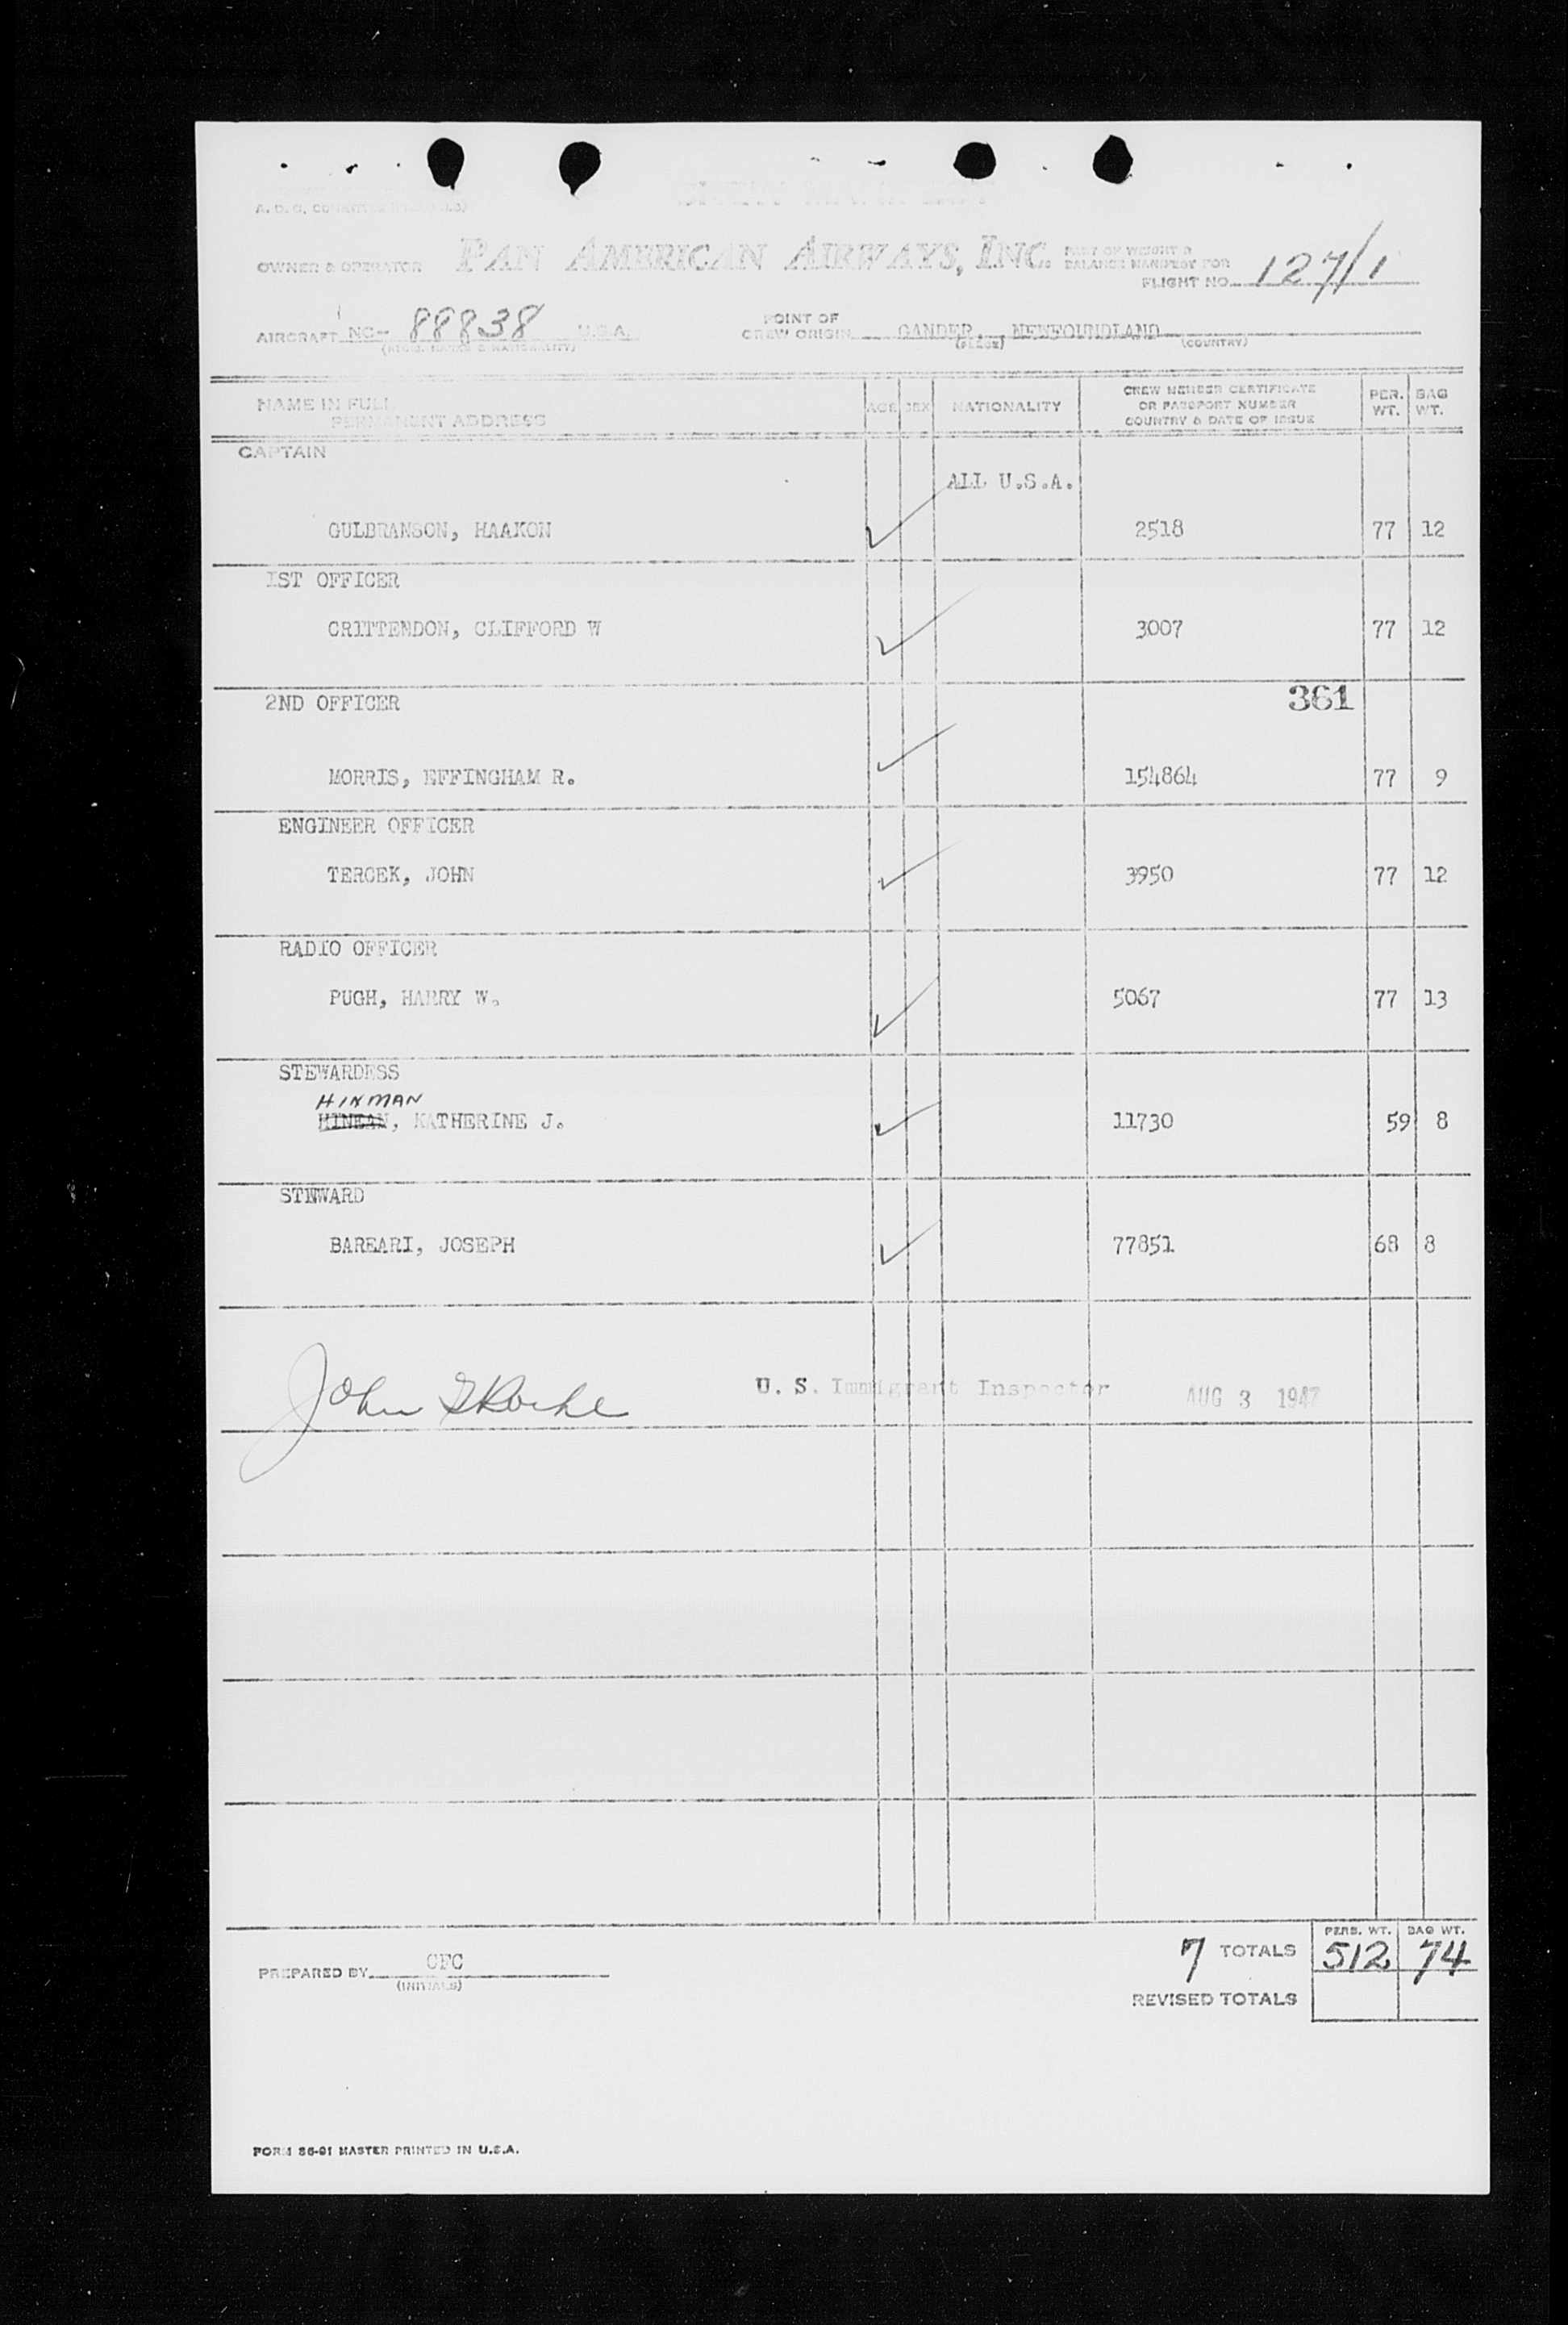 A. D. O.
OWNER & OPERATOR PAN AMERICAN AIRWAYS, INC. PART OF WEIGHT & BALANCE MANIFEST FOR FLIGHT NO. 127/1
AIRCRAFT NC- 88838 U.S.A. POINT OF CREW ORIGIN GANDER, NEWFOUNDLAND
(PLACE) (COUNTRY)
NAME IN FULL PERMANENT ADDRESS AGE SEX NATIONALITY CREW MEMBER CERTIFICATE OR PASSPORT NUMBER COUNTRY & DATE OF ISSUE PER. WT. BAG WT.
CAPTAIN
ALL U.S.A.
GULBRANSON, HAAKON 2518 77 12
1ST OFFICER
CRITTENDON, CLIFFORD W 3007 77 12
2ND OFFICER 361
MORRIS, EFFINGHAM R. 154864 77 9
ENGINEER OFFICER
TERCEK, JOHN 3950 77 12
RADIO OFFICER
PUGH, HARRY W. 5067 77 13
STEWARDESS
HINMAN
, KATHERINE J. 11730 59 8
STEWARD
BAREARI, JOSEPH 77851 68 8
John U. S. Immigrant Inspector AUG 3 1947
PERS. WT. BAG WT.
7 TOTALS 512 74
PREPARED BY CFC
(INITIALS)
REVISED TOTALS
FORM 86-91 MASTER PRINTED IN U.S.A.